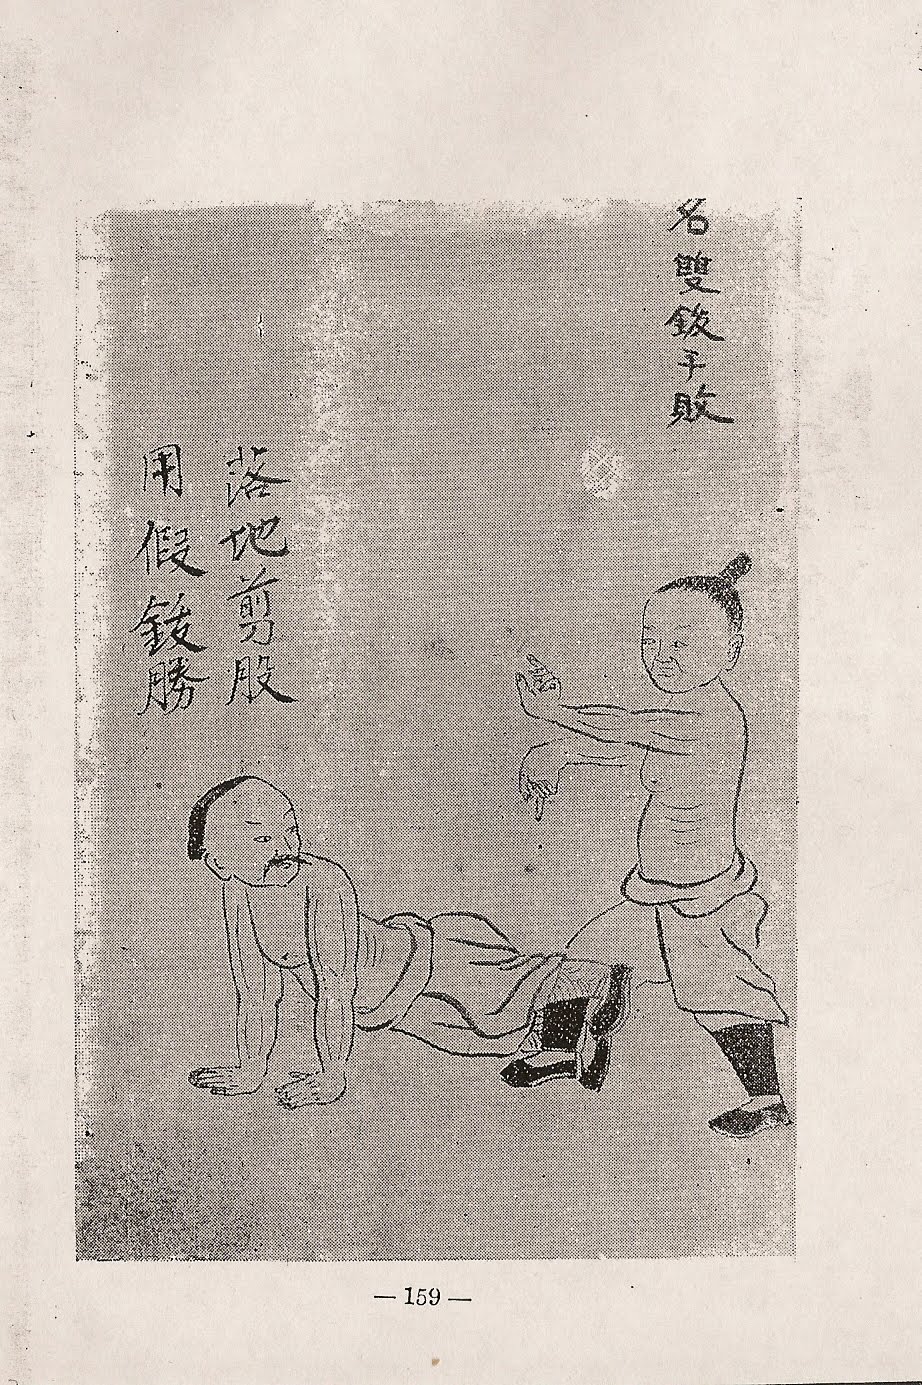 名雙鈸手敗
落地剪股
用假鈸勝
— 159 —